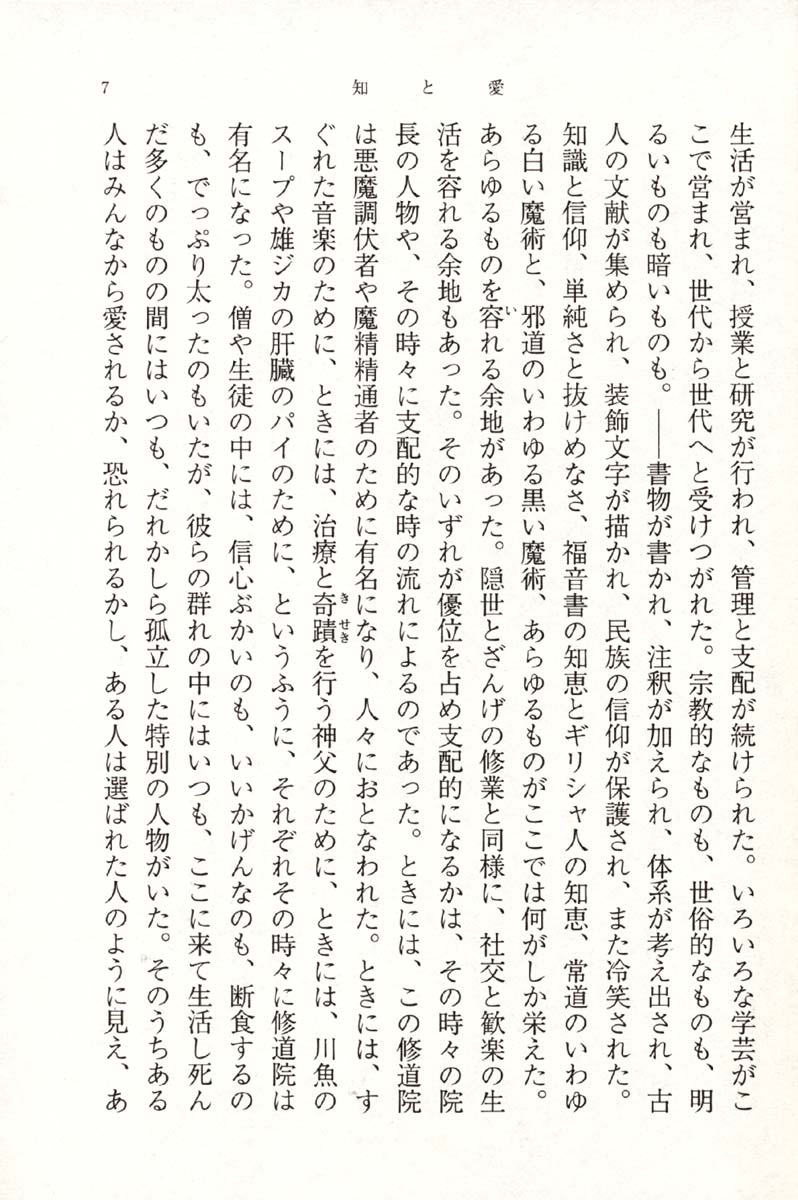 7
知と愛
生活が営まれ、授業と研究が行われ、管理と支配が続けられた。いろいろな学芸がこ
こで営まれ、世代から世代へと受けつがれた。宗教的なものも、世俗的なものも、明
るいものも暗いものも。――書物が書かれ、注釈が加えられ、体系が考え出され、古
人の文献が集められ、装飾文字が描かれ、民族の信仰が保護され、また冷笑された。
知識と信仰、単純さと抜けめなさ、福音書の知恵とギリシャ人の知恵、常道のいわゆ
る白い魔術と、邪道のいわゆる黒い魔術、あらゆるものがここでは何がしか栄えた。
あらゆるものを容れる余地があった。隠世とざんげの修業と同様に、社交と歓楽の生
活を容れる余地もあった。そのいずれが優位を占め支配的になるかは、その時々の院
長の人物や、その時々に支配的な時の流れによるのであった。ときには、この修道院
は悪魔調伏者や魔精精通者のために有名になり、人々におとなわれた。ときには、す
ぐれた音楽のために、ときには、治療と奇蹟を行う神父のために、ときには、川魚の
スープや雄ジカの肝臓のパイのために、というふうに、それぞれその時々に修道院は
有名になった。僧や生徒の中には、信心ぶかいのも、いいかげんなのも、断食するの
も、でっぷり太ったのもいたが、彼らの群れの中にはいつも、ここに来て生活し死ん
だ多くのものの間にはいつも、だれかしら孤立した特別の人物がいた。そのうちある
人はみんなから愛されるか、恐れられるかし、ある人は選ばれた人のように見え、あ